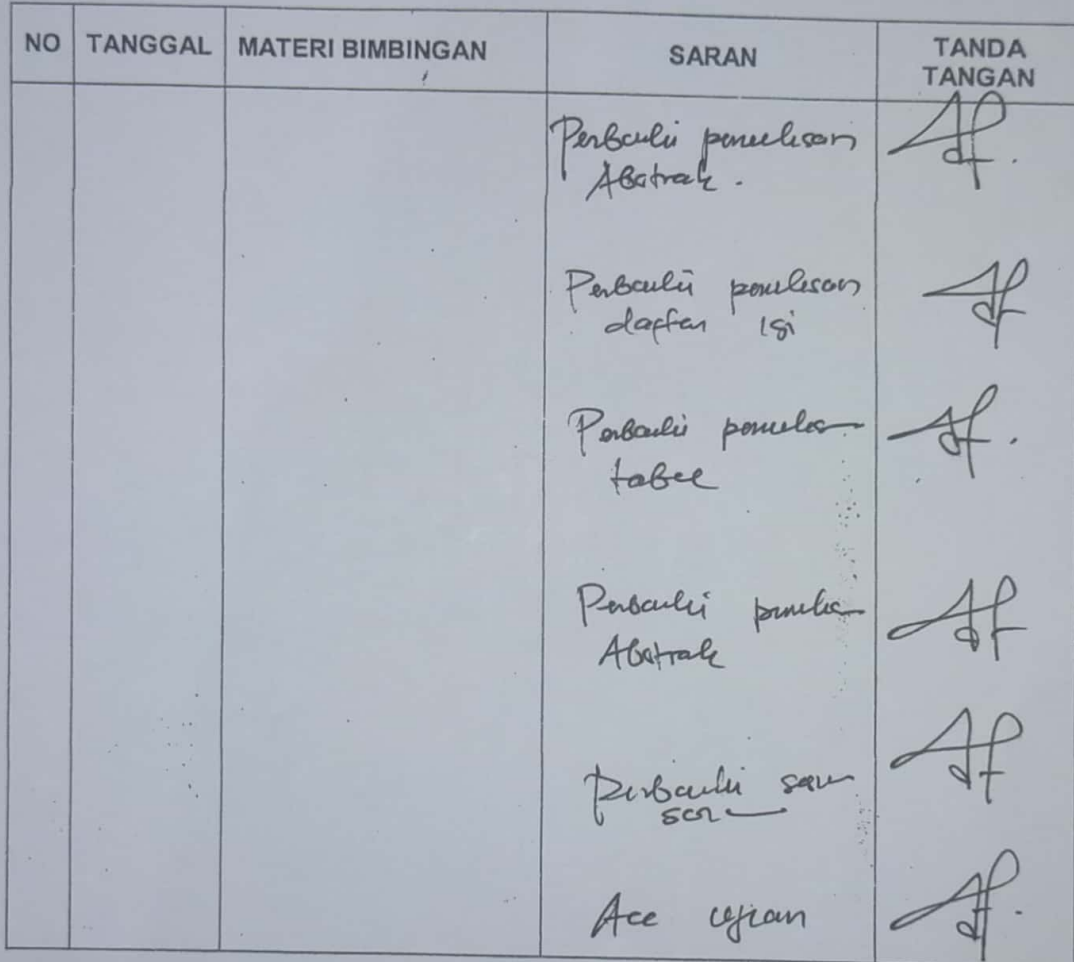 NO TANGGAL MATERI BIMBINGAN SARAN TANDA
TANGAN
Perbaiki penulisan
Abstrak.
Perbaiki penulisan
daftar isi
Perbaiki penulisan
tabel
Perbaiki penulisan
Abstrak
Perbaiki saran
Acc ujian